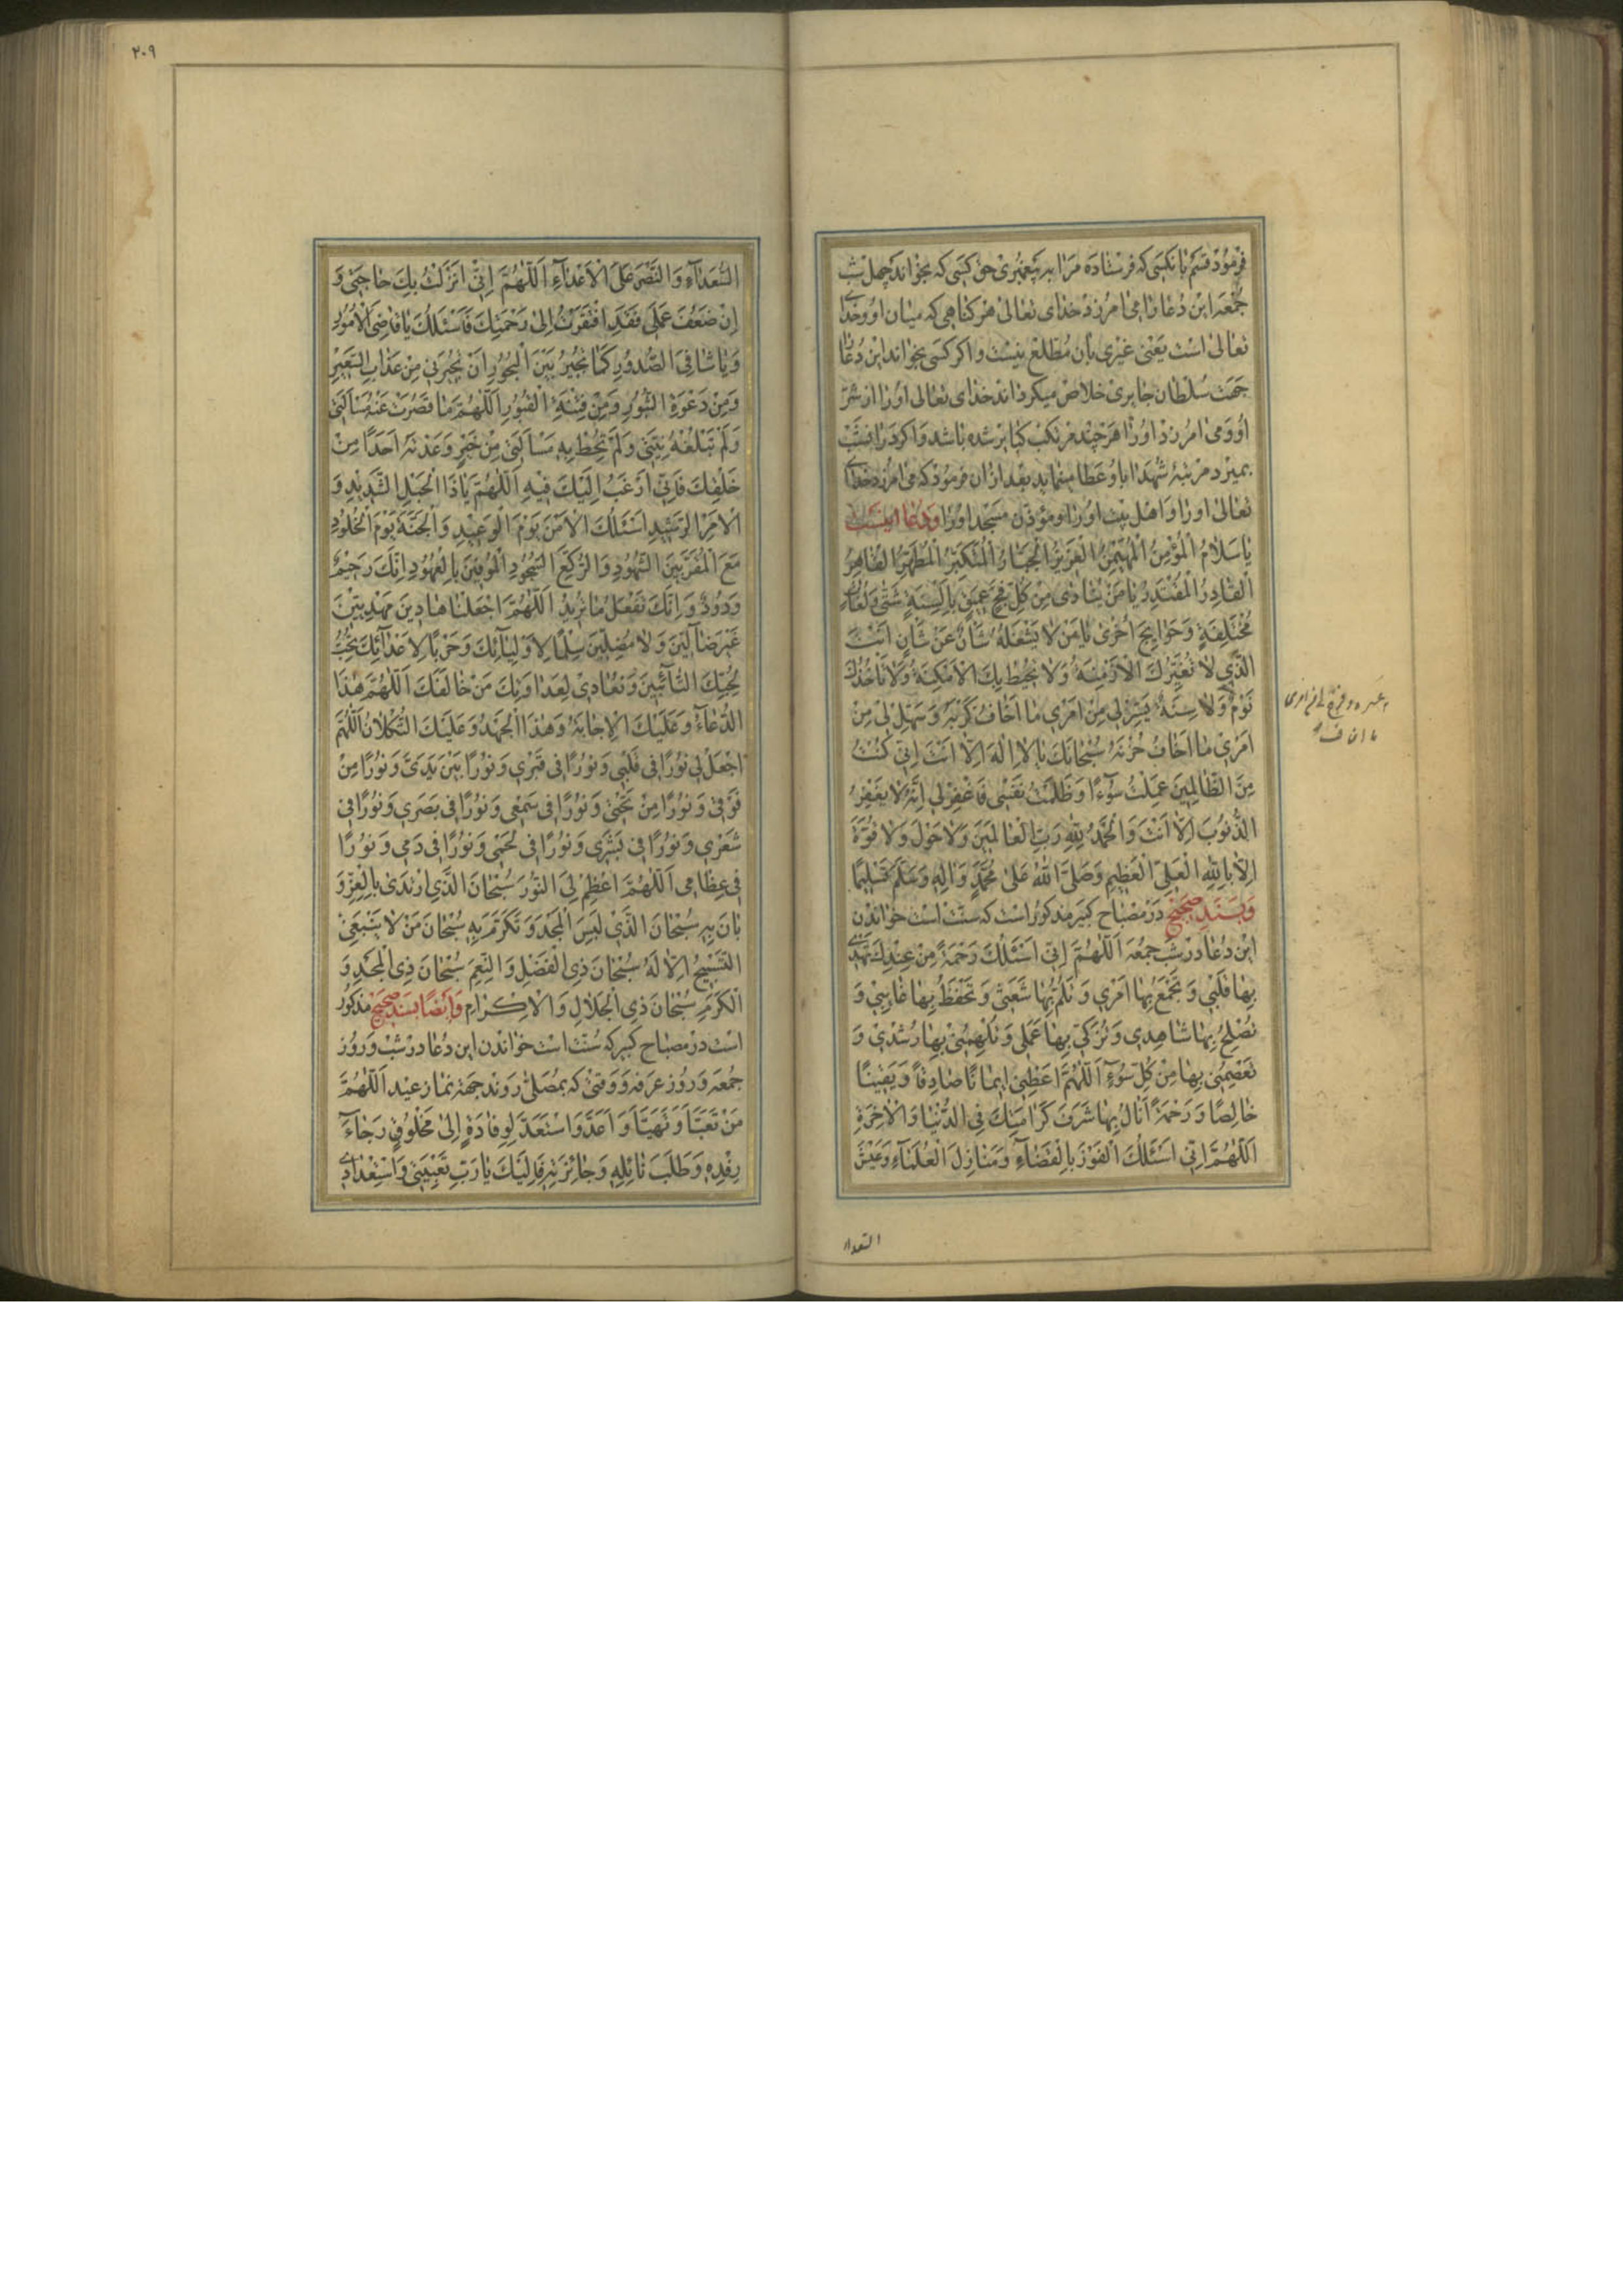 فرمود قسم بانکسی که فرستاده مرا به پیغمبری حق کسی که بخواند چهل شب
جمعه این دعا را می امرزد خدای تعالی هر کناهی که میان او و خدای
تعالی است یعنی غیری بان مطلع نیست و اکر کسی بخواند این دعا
جهت سلطان جابری خلاص میکرداند خدای تعالی او را از شر
او و می امرزد او را هر چند مرتکب کبایر شده باشد و اکر در انشب
بمیرد مرتبه شهدا باو عطا مینماید بعد ازان فرمود که می امرزد خدای
تعالی او را و اهل بیت او را و مؤذن مسجد او را و دعا اینست
يَا سَلَامُ الْمُؤْمِنُ الْمُهَيْمِنُ الْعَزِيزُ الْجَبَّارُ الْمُتَكَبِّرُ الْمُطَهِّرُ الْقَاهِرُ
الْقَادِرُ الْمُقْتَدِرُ يَا مَنْ يُنَادَى مِنْ كُلِّ فَجٍّ عَمِيقٍ بِأَلْسِنَةٍ شَتَّى وَلُغَاتٍ
مُخْتَلِفَةٍ وَحَوَائِجَ أُخْرَى يَا مَنْ لَا يَشْغَلُهُ شَأْنٌ عَنْ شَأْنٍ أَنْتَ
الَّذِي لَا تُغَيِّرُكَ الْأَزْمِنَةُ وَلَا تُحِيطُ بِكَ الْأَمْكِنَةُ وَلَا تَأْخُذُكَ
نَوْمٌ وَلَا سِنَةٌ يَسِّرْ لِي مِنْ أَمْرِي مَا أَخَافُ كَرْبَهُ وَسَهِّلْ لِي مِنْ
أَمْرِي مَا أَخَافُ حُزْنَهُ سُبْحَانَكَ لَا إِلَهَ إِلَّا أَنْتَ إِنِّي كُنْتُ
مِنَ الظَّالِمِينَ عَمِلْتُ سُوءًا وَظَلَمْتُ نَفْسِي فَاغْفِرْ لِي إِنَّهُ لَا يَغْفِرُ
الذُّنُوبَ إِلَّا أَنْتَ وَالْحَمْدُ لِلَّهِ رَبِّ الْعَالَمِينَ وَلَا حَوْلَ وَلَا قُوَّةَ
إِلَّا بِاللَّهِ الْعَلِيِّ الْعَظِيمِ وَصَلَّى اللَّهُ عَلَى مُحَمَّدٍ وَآلِهِ وَسَلَّمَ تَسْلِيمًا
و بسند صحیح در مصباح کبیر مذکور است که سنت است خواندن
این دعا در شب جمعه اللَّهُمَّ إِنِّي أَسْئَلُكَ رَحْمَةً مِنْ عِنْدِكَ تَهْدِي
بِهَا قَلْبِي وَتَجْمَعُ بِهَا أَمْرِي وَتَلُمُّ بِهَا شَعَثِي وَتَحْفَظُ بِهَا غَائِبِي وَ
تُصْلِحُ بِهَا شَاهِدِي وَتُزَكِّي بِهَا عَمَلِي وَتُلْهِمُنِي بِهَا رُشْدِي وَ
تَعْصِمُنِي بِهَا مِنْ كُلِّ سُوءٍ اللَّهُمَّ أَعْطِنِي إِيمَانًا صَادِقًا وَيَقِينًا
خَالِصًا وَرَحْمَةً أَنَالُ بِهَا شَرَفَ كَرَامَتِكَ فِي الدُّنْيَا وَالْآخِرَةِ
اللَّهُمَّ إِنِّي أَسْئَلُكَ الْفَوْزَ بِالْقَضَاءِ وَمَنَازِلَ الْعُلَمَاءِ وَعَيْشَ
السعداء
٢٠٩
السُّعَدَاءِ وَالنَّصْرَ عَلَى الْأَعْدَاءِ اللَّهُمَّ إِنِّي أَنْزَلْتُ بِكَ حَاجَتِي وَ
إِنْ ضَعُفَ عَمَلِي فَقَدِ افْتَقَرْتُ إِلَى رَحْمَتِكَ فَأَسْئَلُكَ يَا قَاضِيَ الْأُمُورِ
وَيَا شَافِيَ الصُّدُورِ كَمَا تُجِيرُ بَيْنَ الْبُحُورِ أَنْ تُجِيرَنِي مِنْ عَذَابِ السَّعِيرِ
وَمِنْ دَعْوَةِ الثُّبُورِ وَمِنْ فِتْنَةِ الْقُبُورِ اللَّهُمَّ مَا قَصُرَتْ عَنْهُ مَسْأَلَتِي
وَلَمْ تَبْلُغْهُ نِيَّتِي وَلَمْ تُحِطْ بِهِ مَسْأَلَتِي مِنْ خَيْرٍ وَعَدْتَهُ أَحَدًا مِنْ
خَلْقِكَ فَإِنِّي أَرْغَبُ إِلَيْكَ فِيهِ اللَّهُمَّ يَا ذَا الْحَبْلِ الشَّدِيدِ وَ
الْأَمْرِ الرَّشِيدِ أَسْئَلُكَ الْأَمْنَ يَوْمَ الْوَعِيدِ وَالْجَنَّةَ يَوْمَ الْخُلُودِ
مَعَ الْمُقَرَّبِينَ الشُّهُودِ وَالرُّكَّعِ السُّجُودِ الْمُوفِينَ بِالْعُهُودِ إِنَّكَ رَحِيمٌ
وَدُودٌ وَإِنَّكَ تَفْعَلُ مَا تُرِيدُ اللَّهُمَّ اجْعَلْنَا هَادِينَ مَهْدِيِّينَ
غَيْرَ ضَالِّينَ وَلَا مُضِلِّينَ سِلْمًا لِأَوْلِيَائِكَ وَحَرْبًا لِأَعْدَائِكَ نُحِبُّ
بِحُبِّكَ التَّائِبِينَ وَنُعَادِي لِعَدَاوَتِكَ مَنْ خَالَفَكَ اللَّهُمَّ هَذَا
الدُّعَاءُ وَعَلَيْكَ الْإِجَابَةُ وَهَذَا الْجُهْدُ وَعَلَيْكَ التُّكْلَانُ اللَّهُمَّ
اجْعَلْ لِي نُورًا فِي قَلْبِي وَنُورًا فِي قَبْرِي وَنُورًا بَيْنَ يَدَيَّ وَنُورًا مِنْ
فَوْقِي وَنُورًا مِنْ تَحْتِي وَنُورًا فِي سَمْعِي وَنُورًا فِي بَصَرِي وَنُورًا فِي
شَعْرِي وَنُورًا فِي بَشَرِي وَنُورًا فِي لَحْمِي وَنُورًا فِي دَمِي وَنُورًا
فِي عِظَامِي اللَّهُمَّ أَعْظِمْ لِيَ النُّورَ سُبْحَانَ الَّذِي ارْتَدَى بِالْعِزِّ وَ
بَانَ بِهِ سُبْحَانَ الَّذِي لَبِسَ الْمَجْدَ وَتَكَرَّمَ بِهِ سُبْحَانَ مَنْ لَا يَنْبَغِي
التَّسْبِيحُ إِلَّا لَهُ سُبْحَانَ ذِي الْفَضْلِ وَالنِّعَمِ سُبْحَانَ ذِي الْمَجْدِ وَ
الْكَرَمِ سُبْحَانَ ذِي الْجَلَالِ وَالْإِكْرَامِ وایضا بسند صحیح مذکور
است در مصباح کبیر که سنت است خواندن این دعا در شب و روز
جمعه و روز عرفه و وقتی که بمصلی روند جهة نماز عید اللَّهُمَّ
مَنْ تَعَبَّأَ وَتَهَيَّأَ وَأَعَدَّ وَاسْتَعَدَّ لِوِفَادَةٍ إِلَى مَخْلُوقٍ رَجَاءَ
رِفْدِهِ وَطَلَبَ نَائِلِهِ وَجَائِزَتِهِ فَإِلَيْكَ يَا رَبِّ تَعْبِيَتِي وَاسْتِعْدَادِي